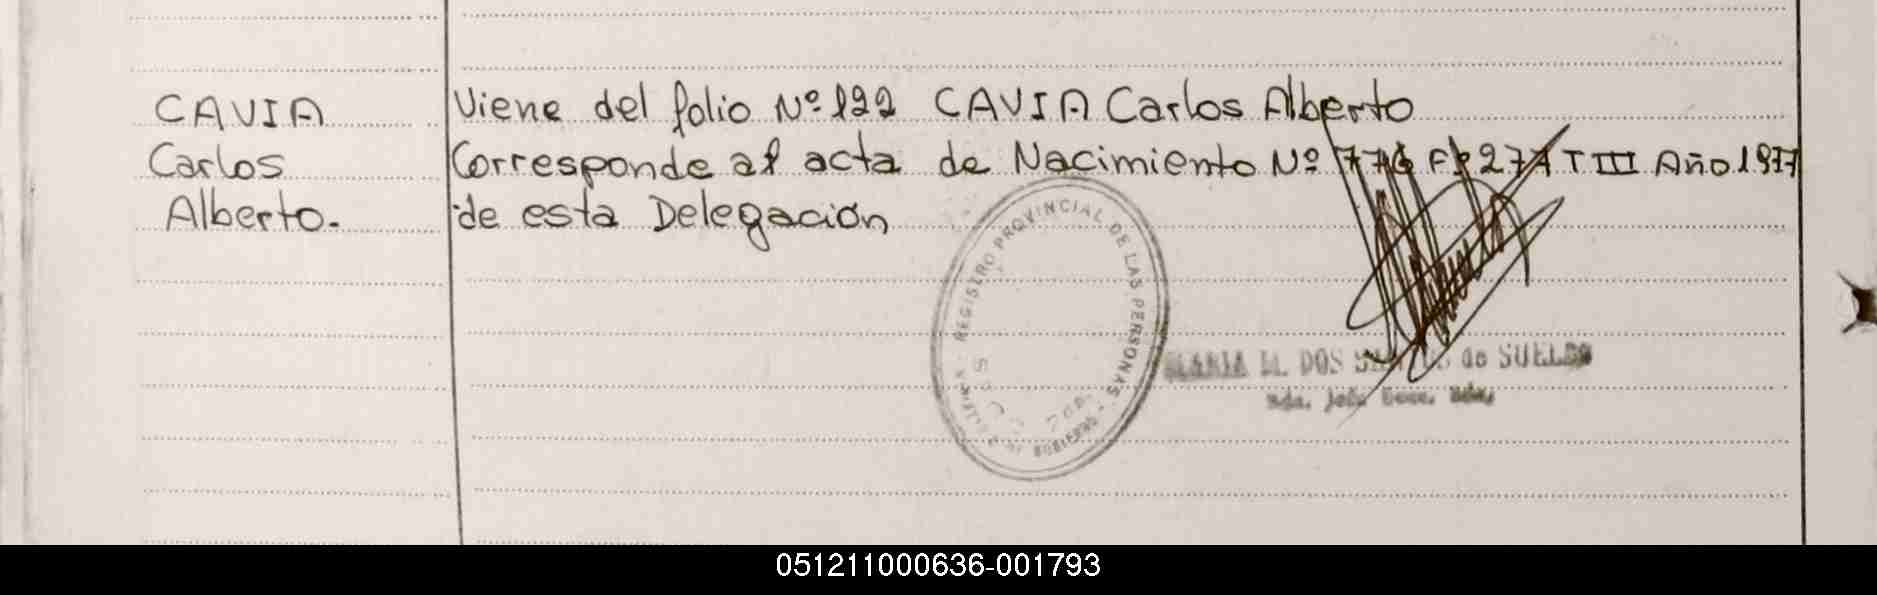 CAVIA
Carlos
Alberto.-
Viene del folio Nº 122 CAVIA Carlos Alberto
Corresponde al acta de Nacimiento Nº 776 Fº 277 T III Año 1977
de esta Delegación
REGISTRO PROVINCIAL DE LAS PERSONAS
DOS de SUELDO
051211000636-001793